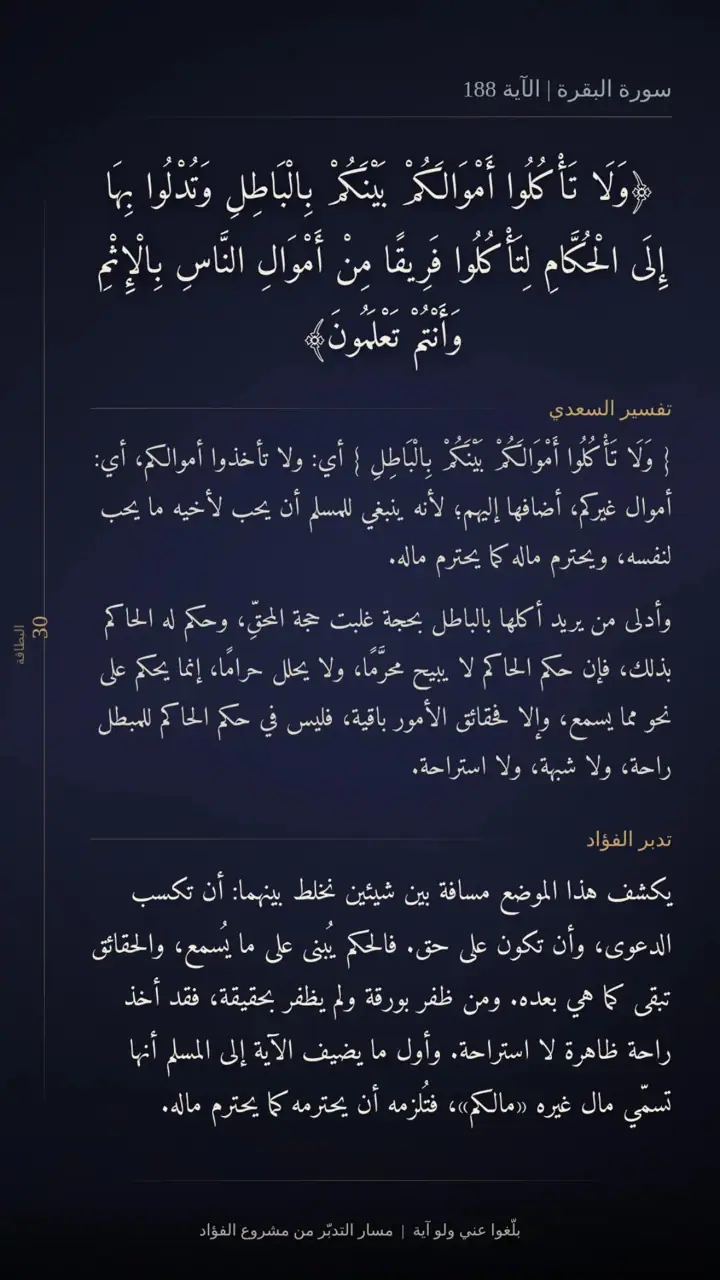 سورة البقرة | الآية 188
﴿وَلَا تَأْكُلُوا أَمْوَالَكُمْ بَيْنَكُمْ بِالْبَاطِلِ وَتُدْلُوا بِهَا
إِلَى الْحُكَّامِ لِتَأْكُلُوا فَرِيقًا مِنْ أَمْوَالِ النَّاسِ بِالْإِثْمِ
وَأَنْتُمْ تَعْلَمُونَ﴾
تفسير السعدي
{ وَلَا تَأْكُلُوا أَمْوَالَكُمْ بَيْنَكُمْ بِالْبَاطِلِ } أي: ولا تأخذوا أموالكم، أي:
أموال غيركم، أضافها إليهم؛ لأنه ينبغي للمسلم أن يحب لأخيه ما يحب
لنفسه، ويحترم ماله كما يحترم ماله.
وأدلى من يريد أكلها بالباطل بحجة غلبت حجة المحقِّ، وحكم له الحاكم
بذلك، فإن حكم الحاكم لا يبيح محرَّمًا، ولا يحلل حرامًا، إنما يحكم على
نحو مما يسمع، وإلا فحقائق الأمور باقية، فليس في حكم الحاكم للمبطل
راحة، ولا شبهة، ولا استراحة.
تدبر الفؤاد
يكشف هذا الموضع مسافة بين شيئين نخلط بينهما: أن تكسب
الدعوى، وأن تكون على حق. فالحكم يُبنى على ما يُسمع، والحقائق
تبقى كما هي بعده. ومن ظفر بورقة ولم يظفر بحقيقة، فقد أخذ
راحة ظاهرة لا استراحة. وأول ما يضيف الآية إلى المسلم أنها
تسمّي مال غيره «مالكم»، فتُلزمه أن يحترمه كما يحترم ماله.
البطاقة
30
بلّغوا عني ولو آية | مسار التدبّر من مشروع الفؤاد